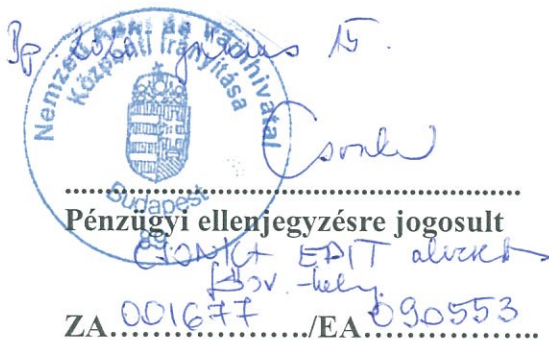 Bp. 2020 június 15.
Nemzeti Adó- és Vámhivatal
Központi Irányítása
Budapest
89
Csonka
Pénzügyi ellenjegyzésre jogosult
CSONKA EDIT
ZA 001677 /EA 090553